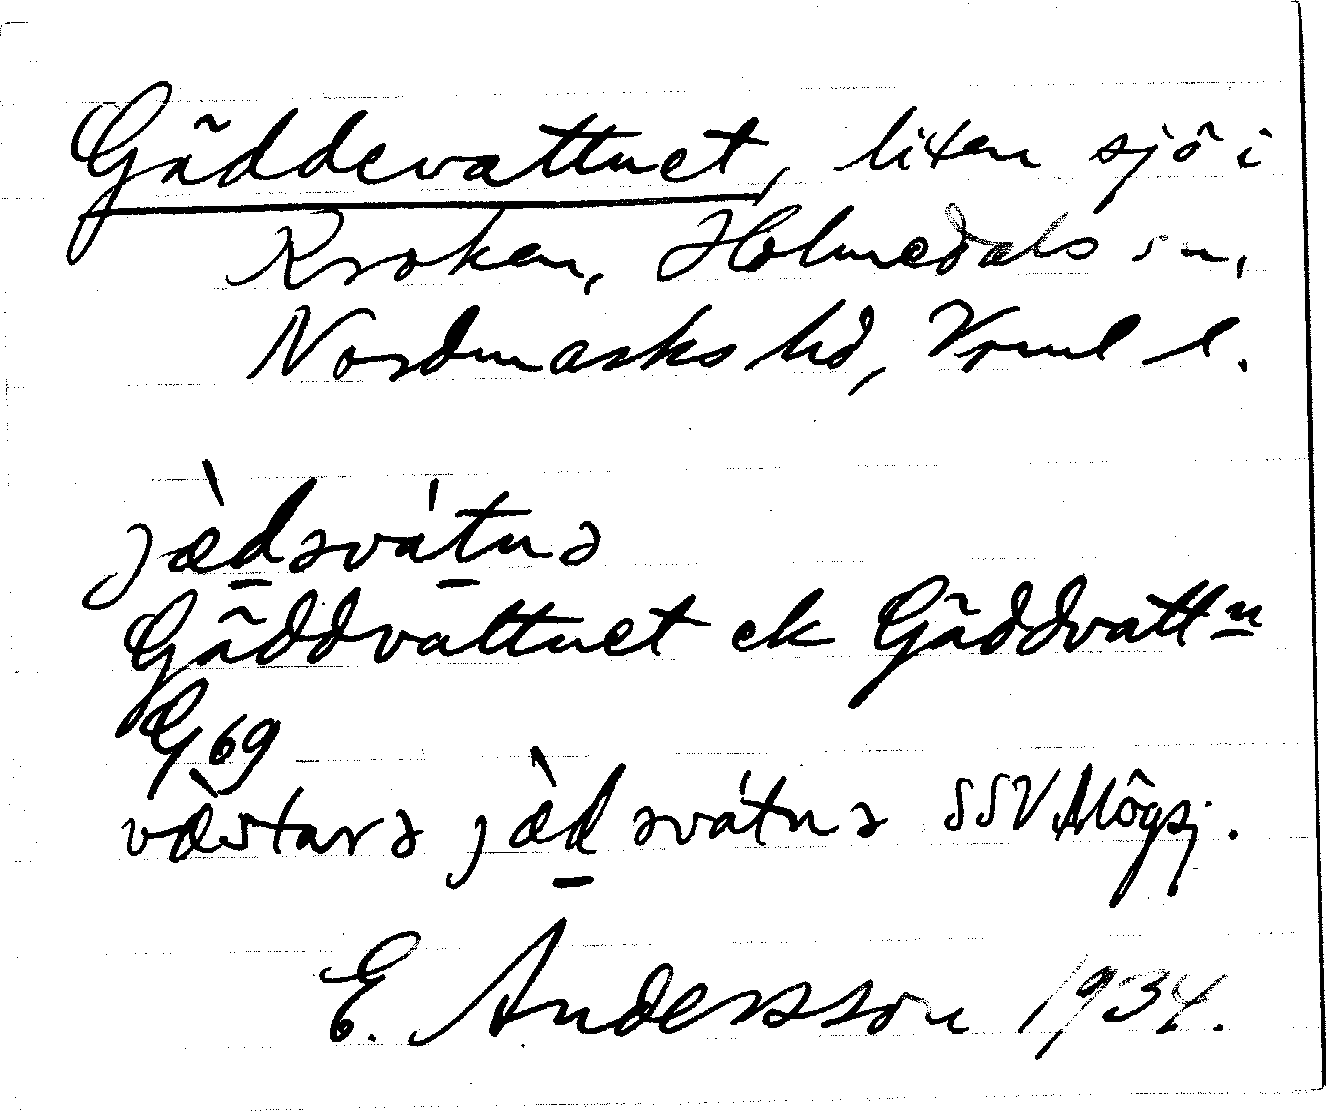 Gäddevattnet, liten sjö i
Kroken, Holmedals sn,
Nordmarks hd, Vrml l.
jæ̀d̲əvát̲nə
Gäddvattnet ek Gäddvattn
G 69
væ̀starə jæ̀d̲əvátnə SSV Högsj.
E. Andersson 1934.